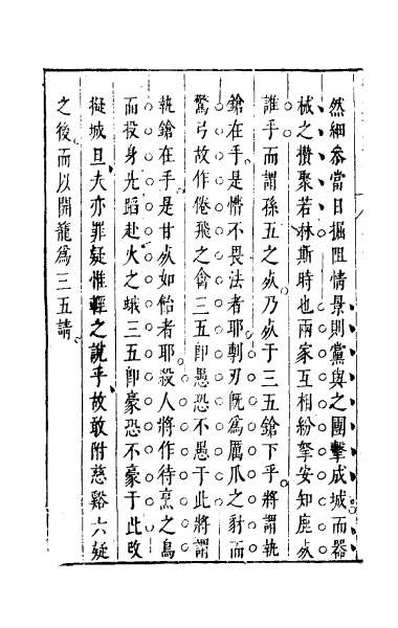 然細參當日掘阻情景則黨與之團擊成城而器
械之攢聚若林斯時也兩家互相紛拏安知鹿死
誰乎而謂孫五之死乃死于三五鎗下乎將謂執
鎗在手是憯不畏法者耶剚刃旣爲厲爪之豺而
驚弓故作倦飛之禽三五卽愚恐不愚于此將謂
執鎗在手是甘死如飴者耶殺人將作待烹之鳥
而投身先蹈赴火之蛾三五卽豪恐不豪于此改
擬城旦夫亦罪疑惟輕之說乎故敢附慈谿六疑
之後而以開籠爲三五請